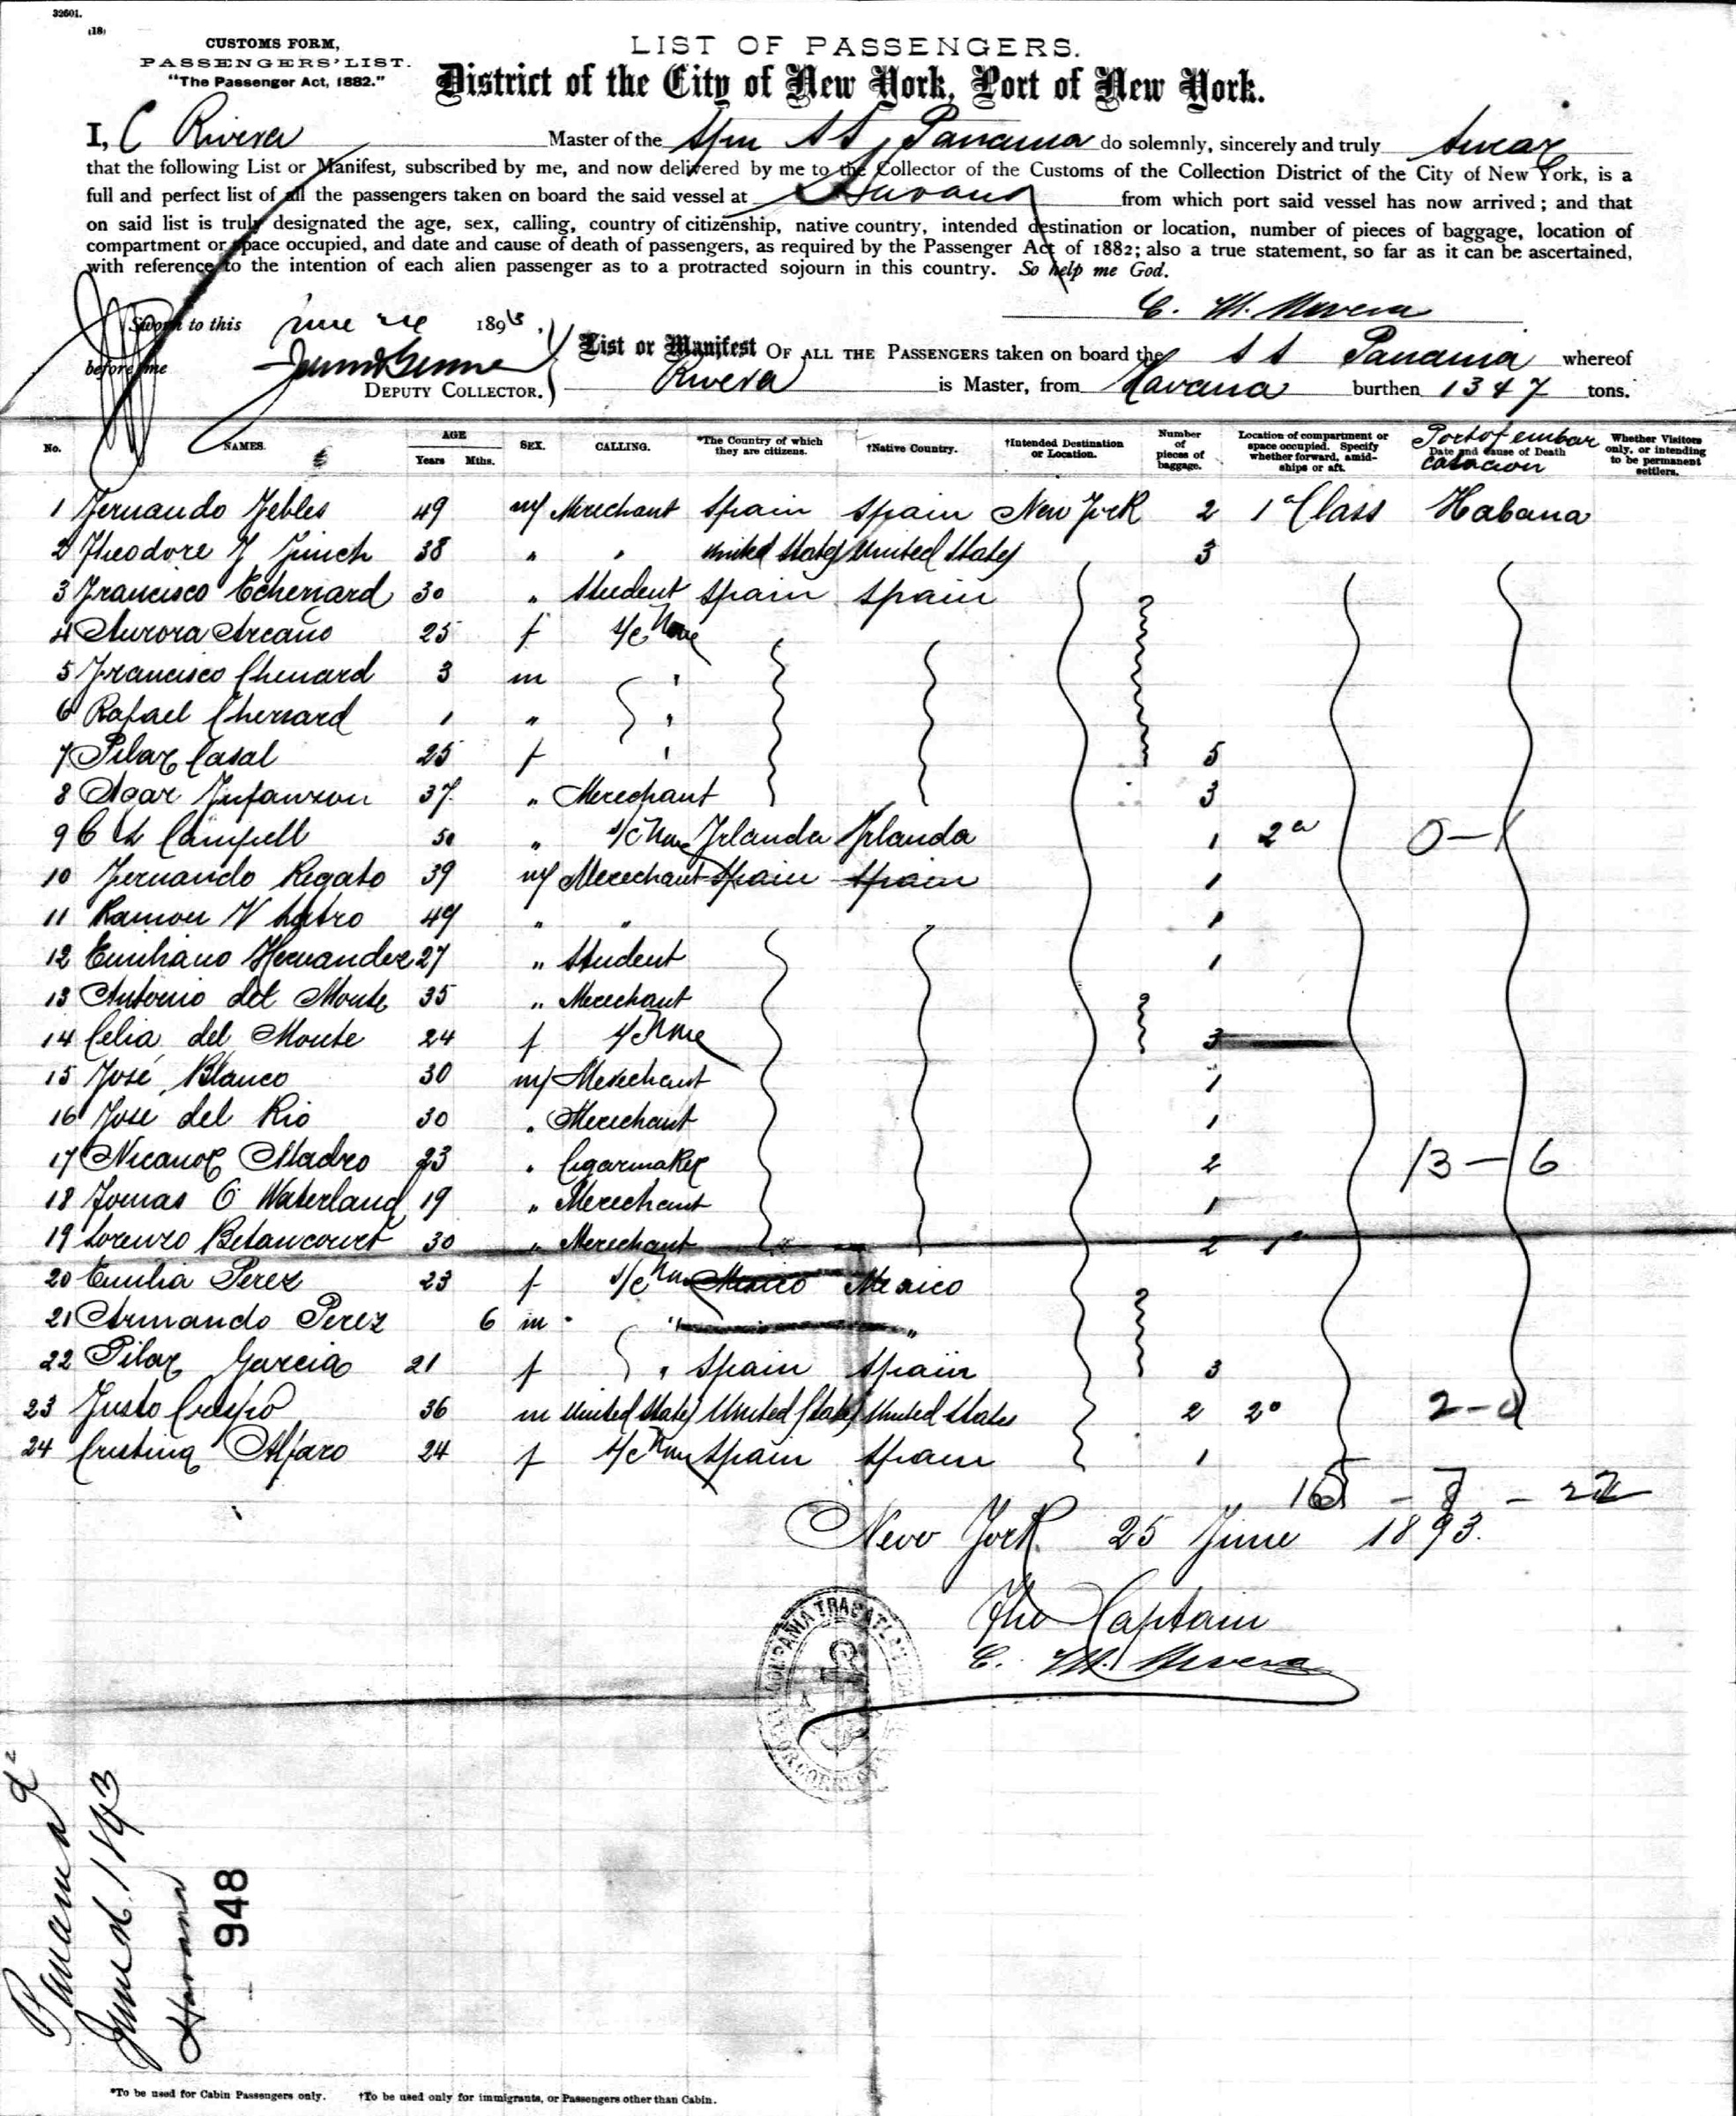 32601.
(18)
CUSTOMS FORM,
PASSENGERS' LIST.
"The Passenger Act, 1882."
LIST OF PASSENGERS.
District of the City of New York, Port of New York.
I, C Rivera Master of the Spn SS, Panama do solemnly, sincerely and truly swear
that the following List or Manifest, subscribed by me, and now delivered by me to the Collector of the Customs of the Collection District of the City of New York, is a
full and perfect list of all the passengers taken on board the said vessel at Havana from which port said vessel has now arrived; and that
on said list is truly designated the age, sex, calling, country of citizenship, native country, intended destination or location, number of pieces of baggage, location of
compartment or space occupied, and date and cause of death of passengers, as required by the Passenger Act of 1882; also a true statement, so far as it can be ascertained,
with reference to the intention of each alien passenger as to a protracted sojourn in this country. So help me God.
Sworn to this June 189
before me
DEPUTY COLLECTOR.
List or Manifest OF ALL THE PASSENGERS taken on board the S S Panama whereof
Rivera is Master, from Havana burthen 1347 tons.
No. NAMES. AGE Years Mths. SEX. CALLING. *The Country of which they are citizens. †Native Country. †Intended Destination or Location. Number of pieces of baggage. Location of compartment or space occupied. Specify whether forward, amidships or aft. Port of embarcacion Date and Cause of Death Whether Visitors only, or intending to be permanent settlers.
1 Fernando Febles 49 m Merechant Spain Spain New York 2 1a Class Habana
2 Theodore F Finch 38 " " United States United States 3
3 Francisco Echenard 30 " Student Spain Spain
4 Aurora Arcaño 25 f s/c None
5 Francisco Chenard 3 m "
6 Rafael Chenard 1 " "
7 Pilar Casal 25 f " 5
8 Agar Infanzon 37 " Merechant 3
9 C L Campell 50 " s/c None Irlanda Irlanda 1 2a 0-1
10 Fernando Regato 39 m Merechant Spain Spain 1
11 Ramon V 49 " " " 1
12 Emiliano Hernandez 27 " Student 1
13 Antonio del Monte 35 " Merechant
14 Celia del Monte 24 f s/c None 3
15 José Blanco 30 m Merechant 1
16 José del Rio 30 " Merechant 1
17 Nicanor Madro 23 " Cigarmaker 2 13-6
18 Tomas O Waterland 19 " Merechant 1
19 Lorenzo Betancourt 30 " Merechant 2 1a
20 Emilia Perez 23 f s/c None Mexico Mexico
21 Armando Perez 6 m " "
22 Pilar Garcia 21 f " Spain Spain 3
23 Justo Crespo 36 m United States United States United States 2 2a 2-0
24 Cristina Alfaro 24 f s/c None Spain Spain 1
New York 25 June 1893.
The Captain
C. M. Rivera
Panama
Havana
948
*To be used for Cabin Passengers only. †To be used only for immigrants, or Passengers other than Cabin.